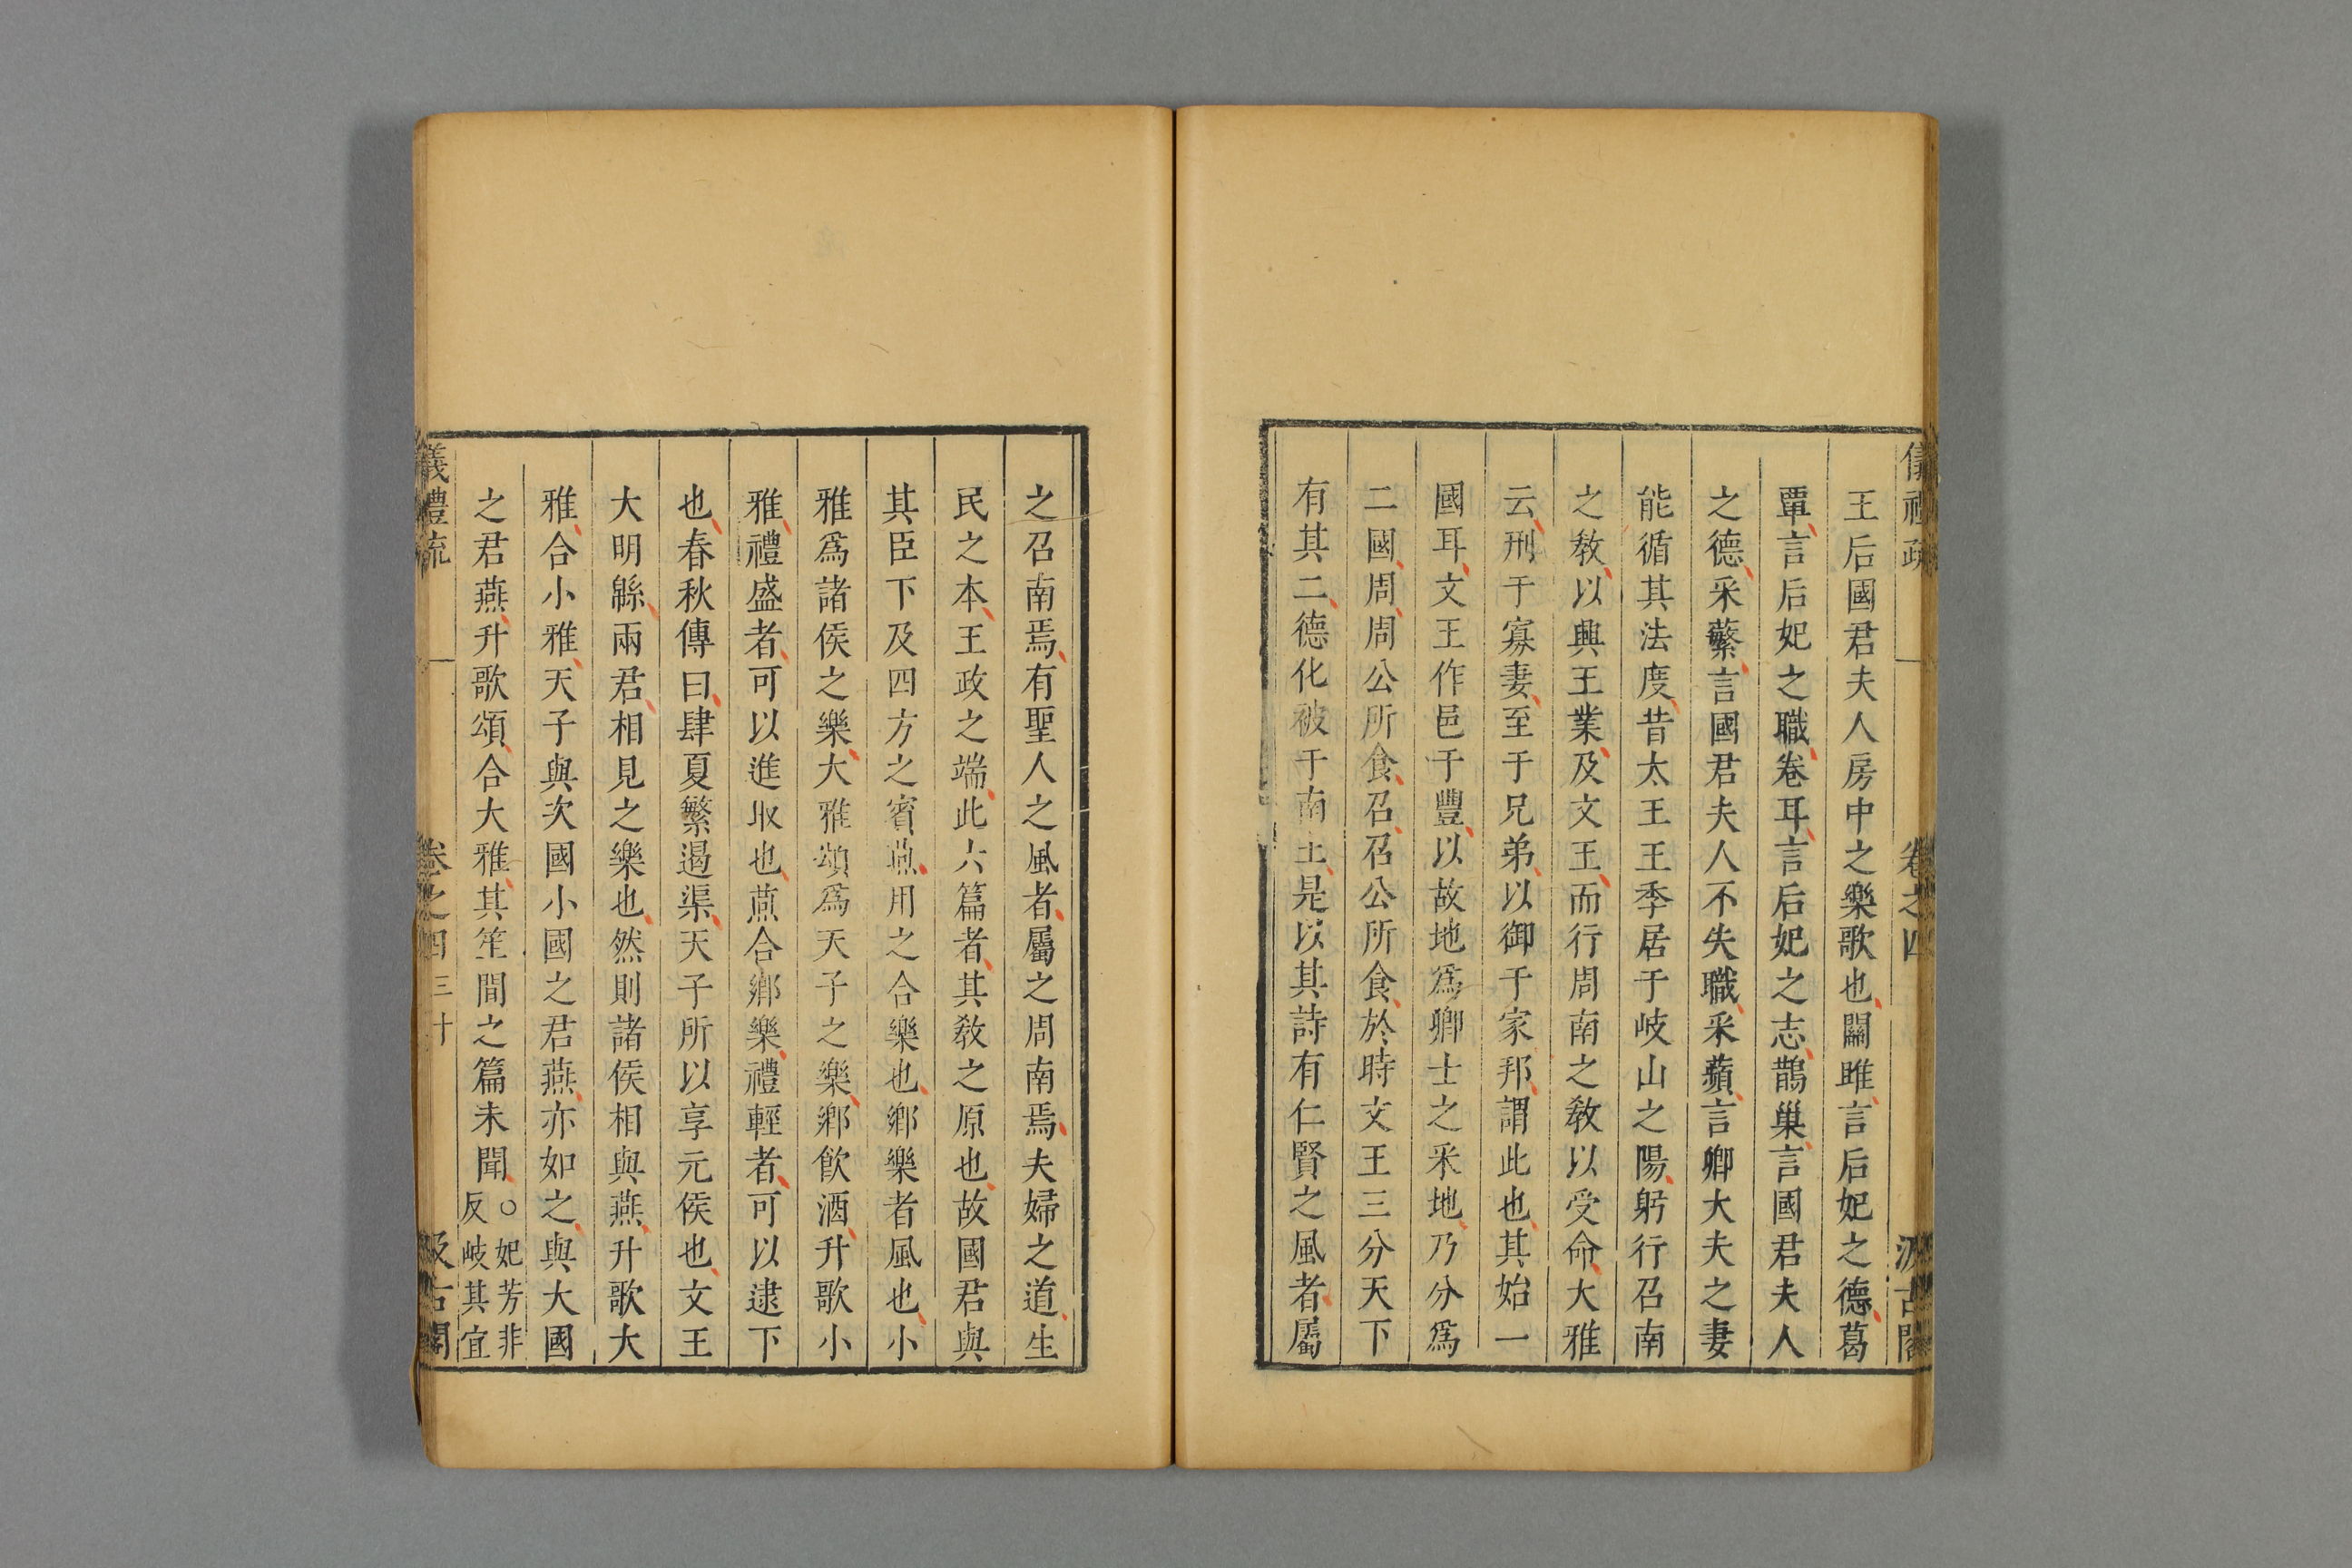 儀禮疏 卷之四 汲古閣
王后國君夫人房中之樂歌也關雎言后妃之德葛
覃言后妃之職卷耳言后妃之志鵲巢言國君夫人
之德采蘩言國君夫人不失職采蘋言卿大夫之妻
能循其法度昔太王王季居于岐山之陽躬行召南
之敎以興王業及文王而行周南之敎以受命大雅
云刑于寡妻至于兄弟以御于家邦謂此也其始一
國耳文王作邑于豐以故地爲卿士之采地乃分爲
二國周周公所食召召公所食於時文王三分天下
有其二德化被于南土是以其詩有仁賢之風者屬
之召南焉有聖人之風者屬之周南焉夫婦之道生
民之本王政之端此六篇者其敎之原也故國君與
其臣下及四方之賓燕用之合樂也鄉樂者風也小
雅爲諸侯之樂大雅頌爲天子之樂鄉飮酒升歌小
雅禮盛者可以進取也燕合鄉樂禮輕者可以逮下
也春秋傳曰肆夏繁遏渠天子所以享元侯也文王
大明緜兩君相見之樂也然則諸侯相與燕升歌大
雅合小雅天子與次國小國之君燕亦如之與大國
之君燕升歌頌合大雅其笙間之篇未聞○妃芳非
反岐其宜
儀禮疏 卷之四 三十 汲古閣